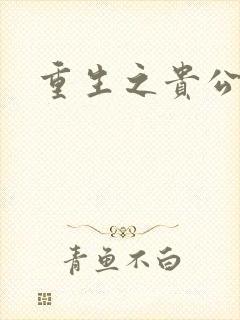 重生之貴公
青魚不白